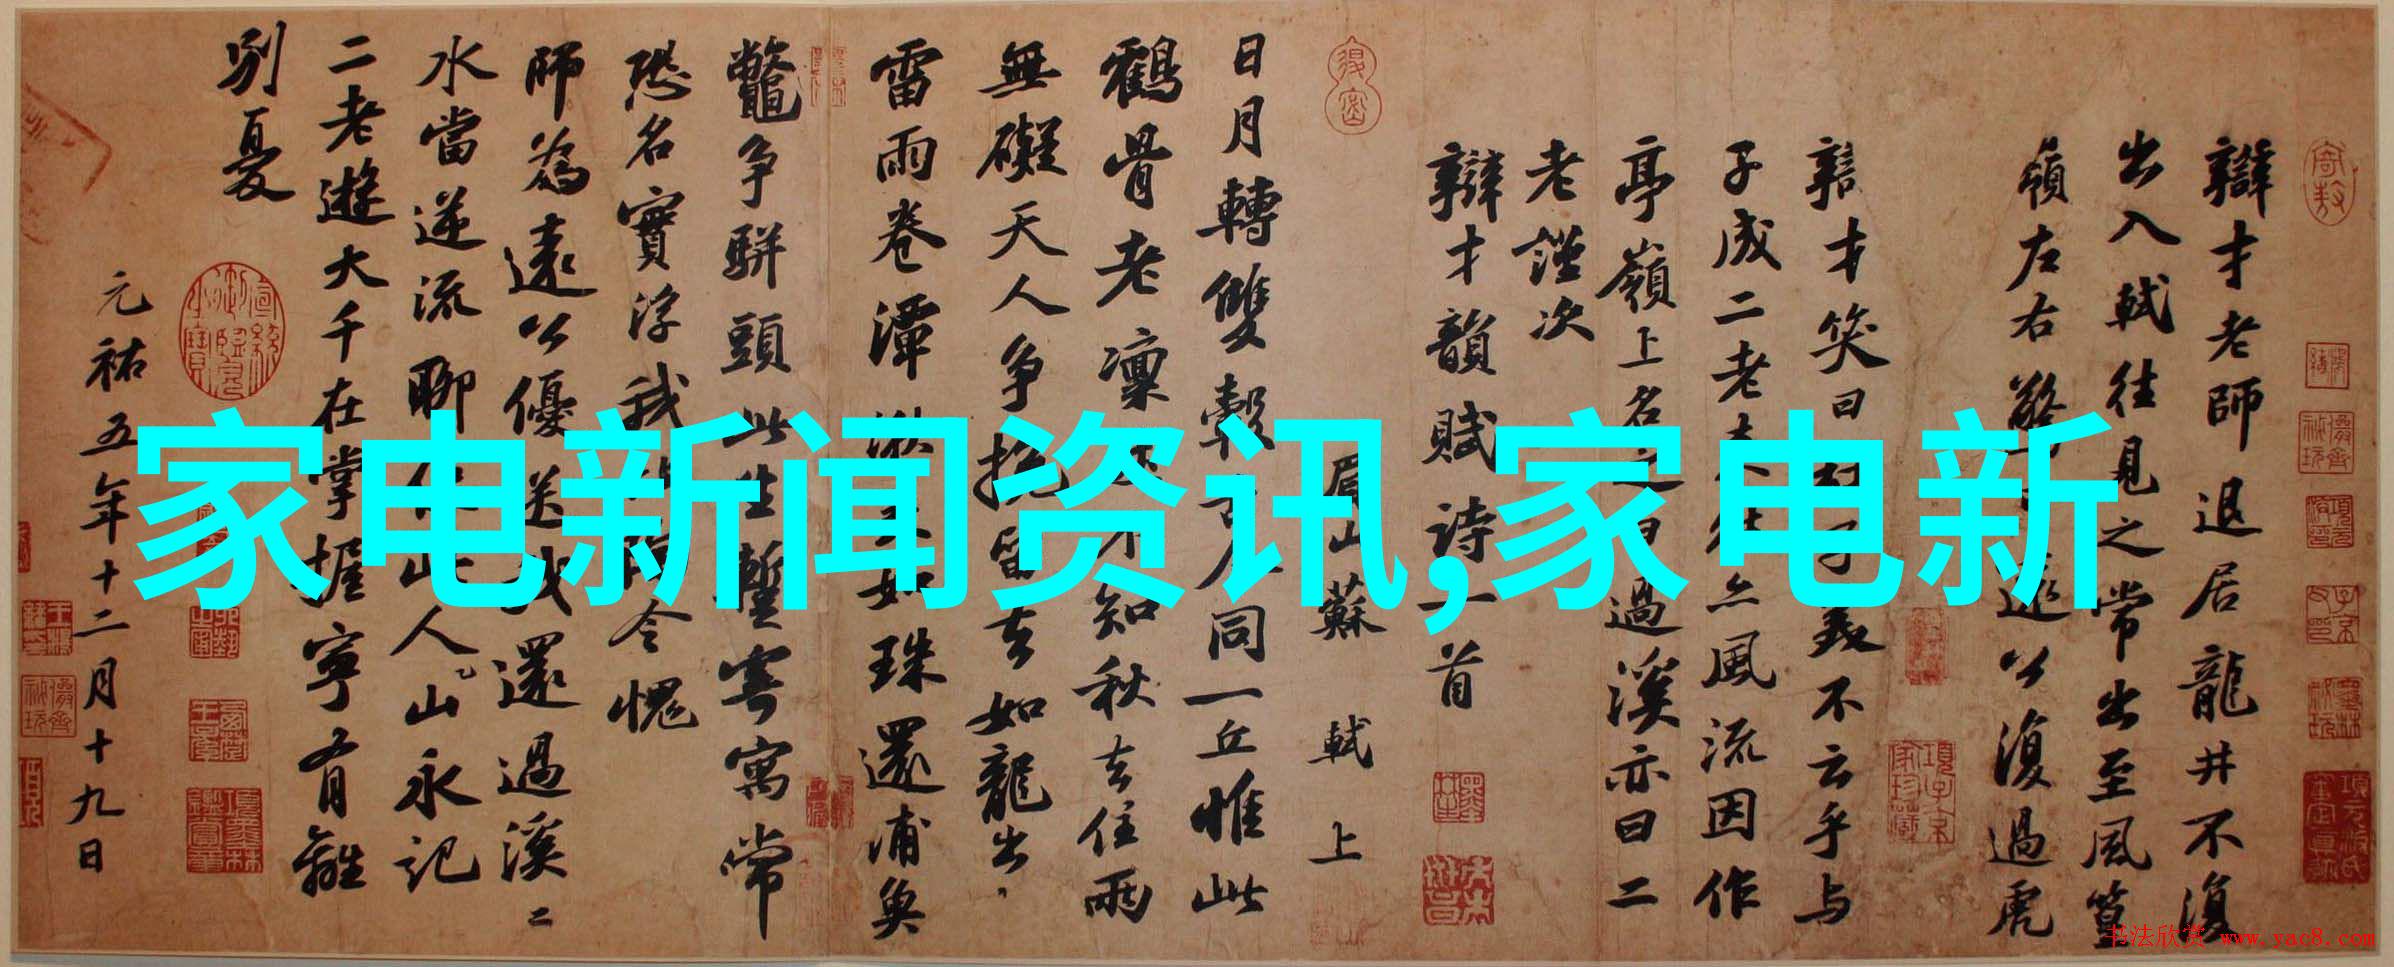 辯才老師退居龍井不復
出入軾往見之常出至風篁
嶺左右驚遠公復過虎
辯才笑曰杜子美不云乎與
子成二老来往亦風流因作
亭嶺上名之曰過溪亦曰二
老謹次
辯才韻賦詩一首
眉山蘇軾上
日月轉雙轂古今同一丘惟此
鶴骨老凜不知秋去住兩
無礙天人争挽留去如龍出
雷雨卷潭湫来如珠還浦魚
鼈争駢頭此生蹔寄寓常
恐名實浮我陶令愧
師為遠公優送我還過溪二
水當逆流聊使此山人山永記
二老遊大千在掌握寧有離
別憂
元祐五年十二月十九日
家电新闻资讯,家电新
书法欣赏 www.yac8.com